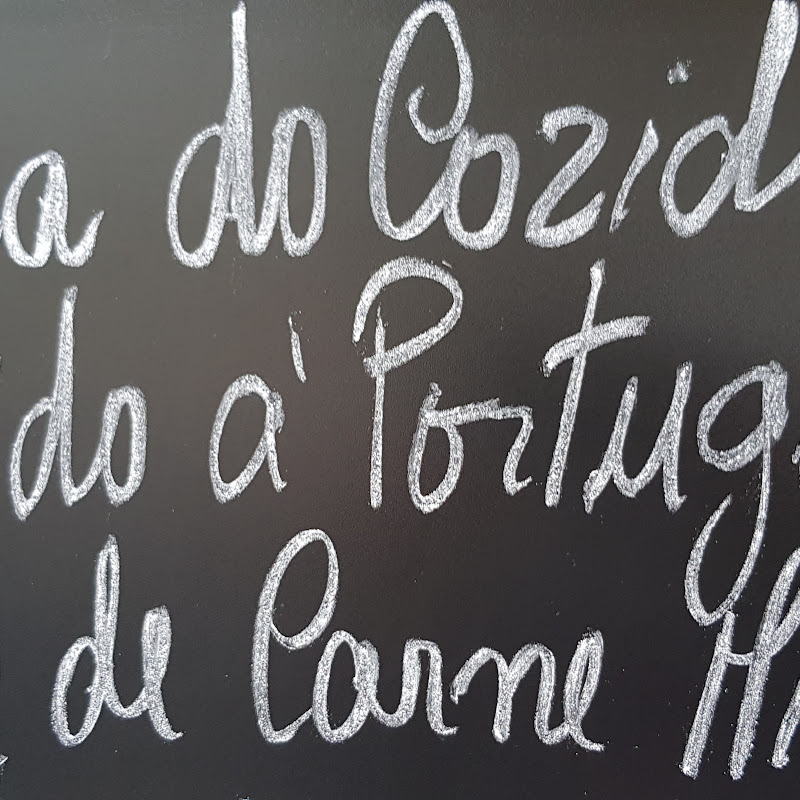 a do Cozid
do à Portug
de Carne